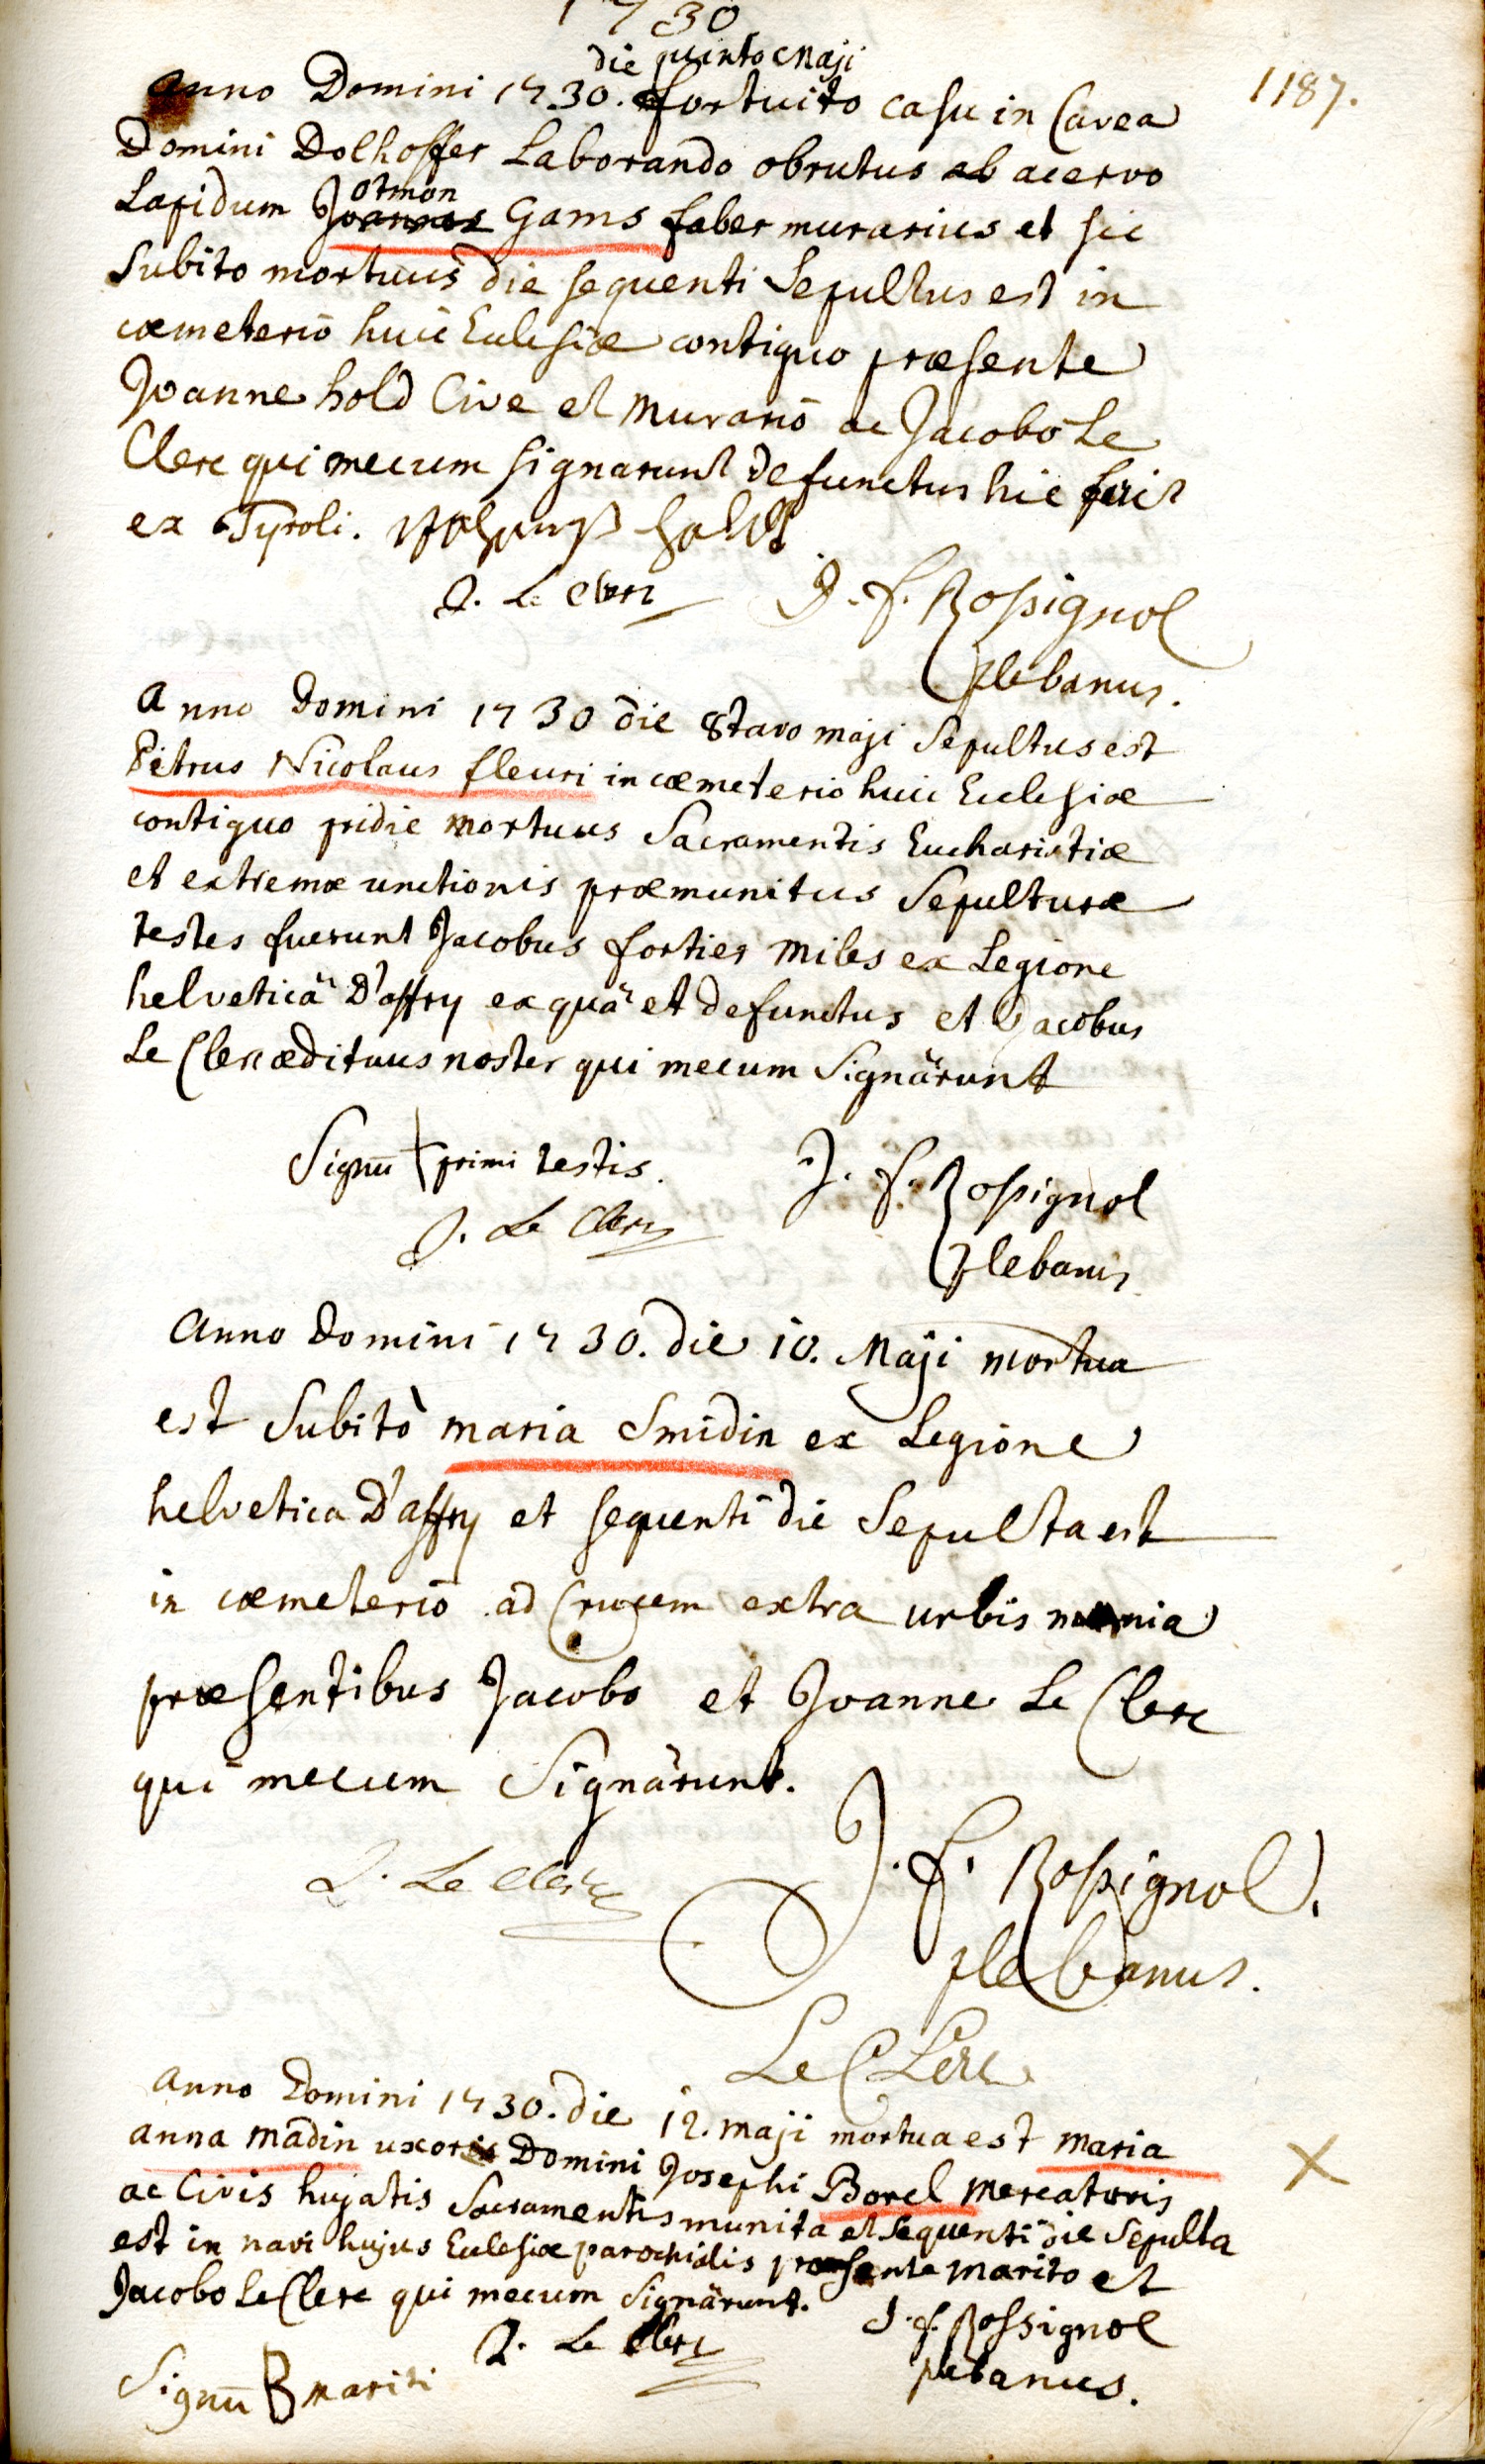 1730
1187.
die quinto Maji
anno Domini 1730. fortuito casu in Cavea
Domini Dolhoffer Laborando obrutus ab acervo
Lapidum Joannes otmon Gams faber murarius et sic
Subito mortuus die sequenti Sepultus est in
cœmeterio huic Eclesiæ contiguo præsente
Joanne hold Cive et murario ac Jacobo Le
Clerc qui mecum signarunt defunctus hic fuit
ex Tyroli.
J. Le Clerc J. f. Rossignol
plebanus.
anno Domini 1730 die 8tavo maji Sepultus est
Petrus Nicolaus fleuri in cœmeterio huic Ecclesiæ
contiguo pridie mortuus Sacramentis Eucharistiæ
et extremæ unctionis præmunitus Sepulturæ
testes fuerunt Jacobus fortier miles ex Legione
helveticâ D'affry ex quâ et defunctus et Jacobus
Le Clerc ædituus noster qui mecum Signârunt
Signū + primi testis. J. f. Rossignol
J. Le Clerc plebanus
Anno Domini 1730. die 10. Maji mortua
est Subitò maria Smidin ex Legione
helvetica D'affry et sequenti die Sepulta est
in cœmeterio ad Crucem extra urbis mœnia
præsentibus Jacobo et Joanne Le Clerc
qui mecum Signârunt.
J. Le Clerc J. f. Rossignol.
plebanus.
Le CLerc
anno Domini 1730. die 12. maji mortua est maria
anna madin uxor Domini Josephi Borel mercatoris
ac Civis hujatis Sacramentis munita et sequenti die Sepulta
est in navi hujus Eclesiæ parochialis præsente marito et
Jacobo Le Clerc qui mecum Signârunt.
J. Le Clerc J. f. Rossignol
Signū B mariti plebanus.